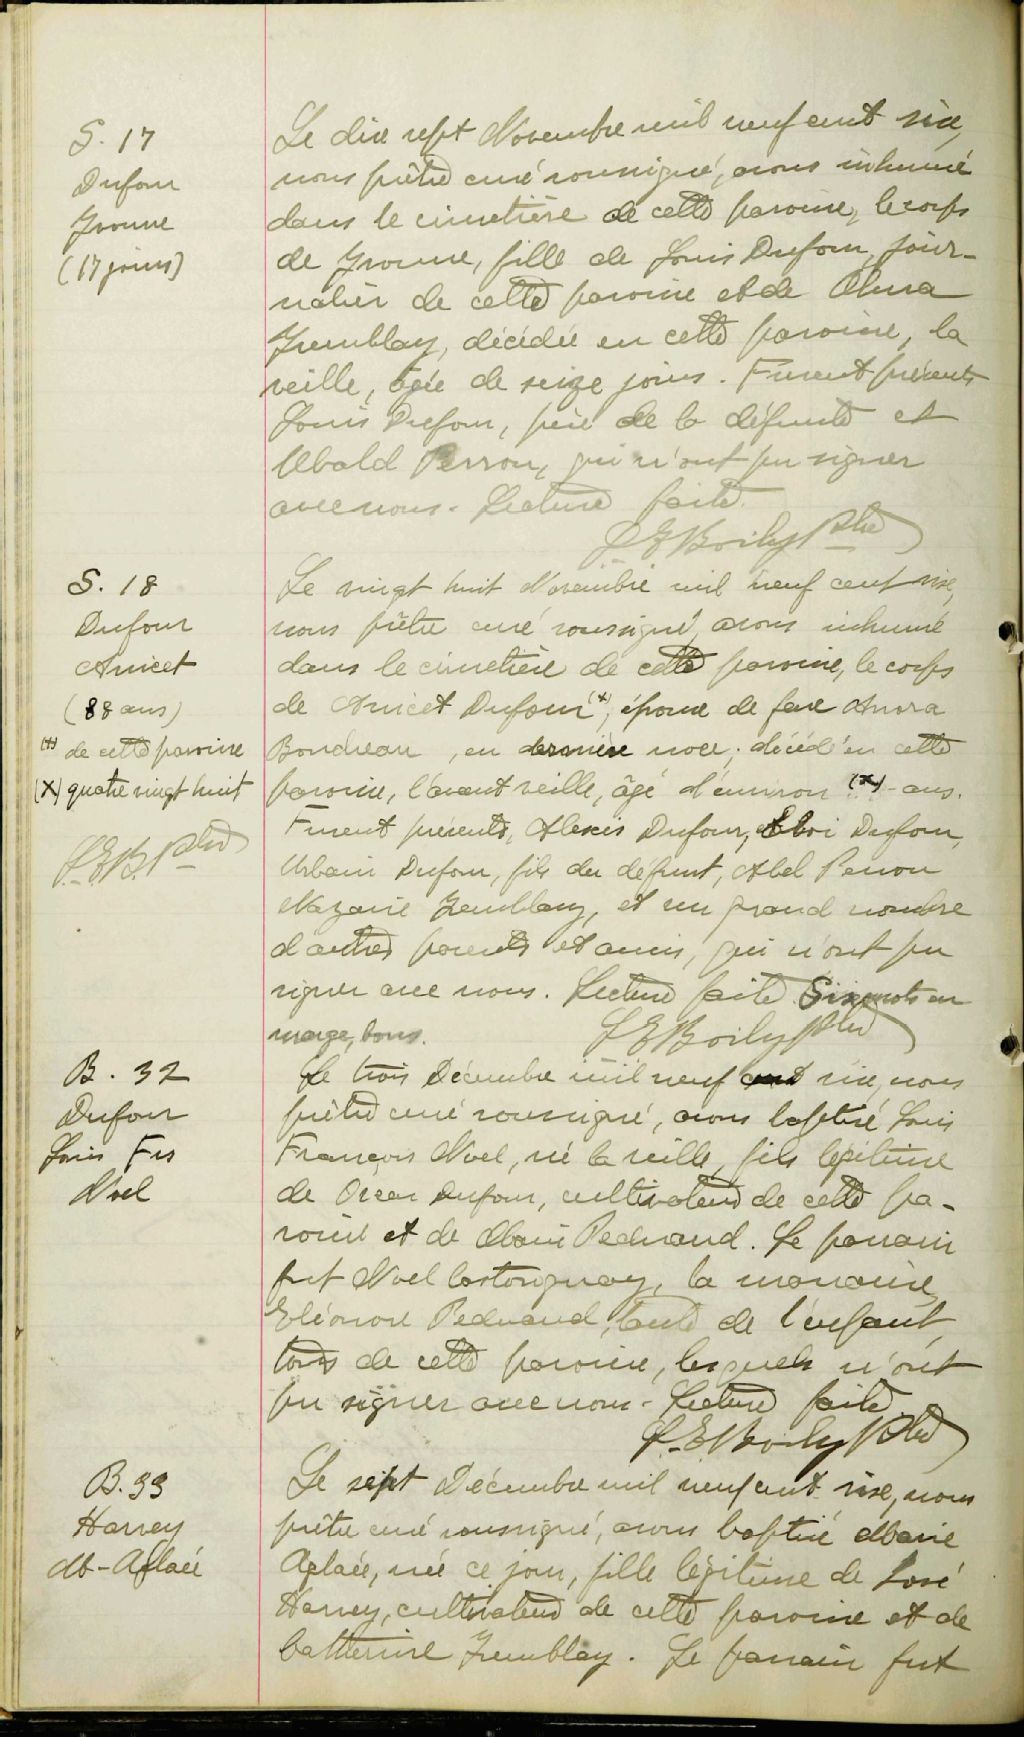 S. 17
Dufour
Yvonne
(17 jours)
Le dix sept Novembre mil neuf cent six,
nous prêtre curé soussigné, avons inhumé
dans le cimetière de cette paroisse, le corps
de Yvonne, fille de Louis Dufour, jour-
nalier de cette paroisse et de Alma
Tremblay, décédée en cette paroisse, la
veille, âgée de seize jours. Furent présents
Louis Dufour, père de la défunte et
Ubald Perron, qui n'ont pu signer
avec nous. Lecture faite.
L E Boily Ptre
S. 18
Dufour
Anicet
(88 ans)
(+) de cette paroisse
(X) quatre vingt huit
L.E.B. Ptre
Le vingt huit Novembre mil neuf cent six,
nous prêtre curé soussigné, avons inhumé
dans le cimetière de cette paroisse, le corps
de Anicet Dufour (+), époux de feue
Boudreau, en dernière noce, décédé en cette
paroisse, l'avant veille, âgé d'environ (X) ans.
Furent présents, Alexis Dufour, Eloi Dufour,
Urbain Dufour, fils du défunt, Abel Perron
Nazaire Tremblay, et un grand nombre
d'autres parents et amis, qui n'ont pu
signer avec nous. Lecture faite. Six mots en
marge, bons.
L E Boily Ptre
B. 32
Dufour
Louis Frs
Noel
Le trois Décembre mil neuf cent six, nous
prêtre curé soussigné, avons baptisé Louis
François Noel, né la veille, fils légitime
de Oscar Dufour, cultivateur de cette pa-
roisse et de Marie Pedneaud. Le parrain
fut Noel Castonguay, la marraine,
Eléonore Pedneaud, tante de l'enfant,
tous de cette paroisse, lesquels n'ont
pu signer avec nous. Lecture faite.
L. E Boily Ptre
B. 33
Harvey
M-Aglaée
Le sept Décembre mil neuf cent six, nous
prêtre curé soussigné, avons baptisé Marie
Aglaée, née ce jour, fille légitime de José
Harvey, cultivateur de cette paroisse et de
Catherine Tremblay. Le parrain fut